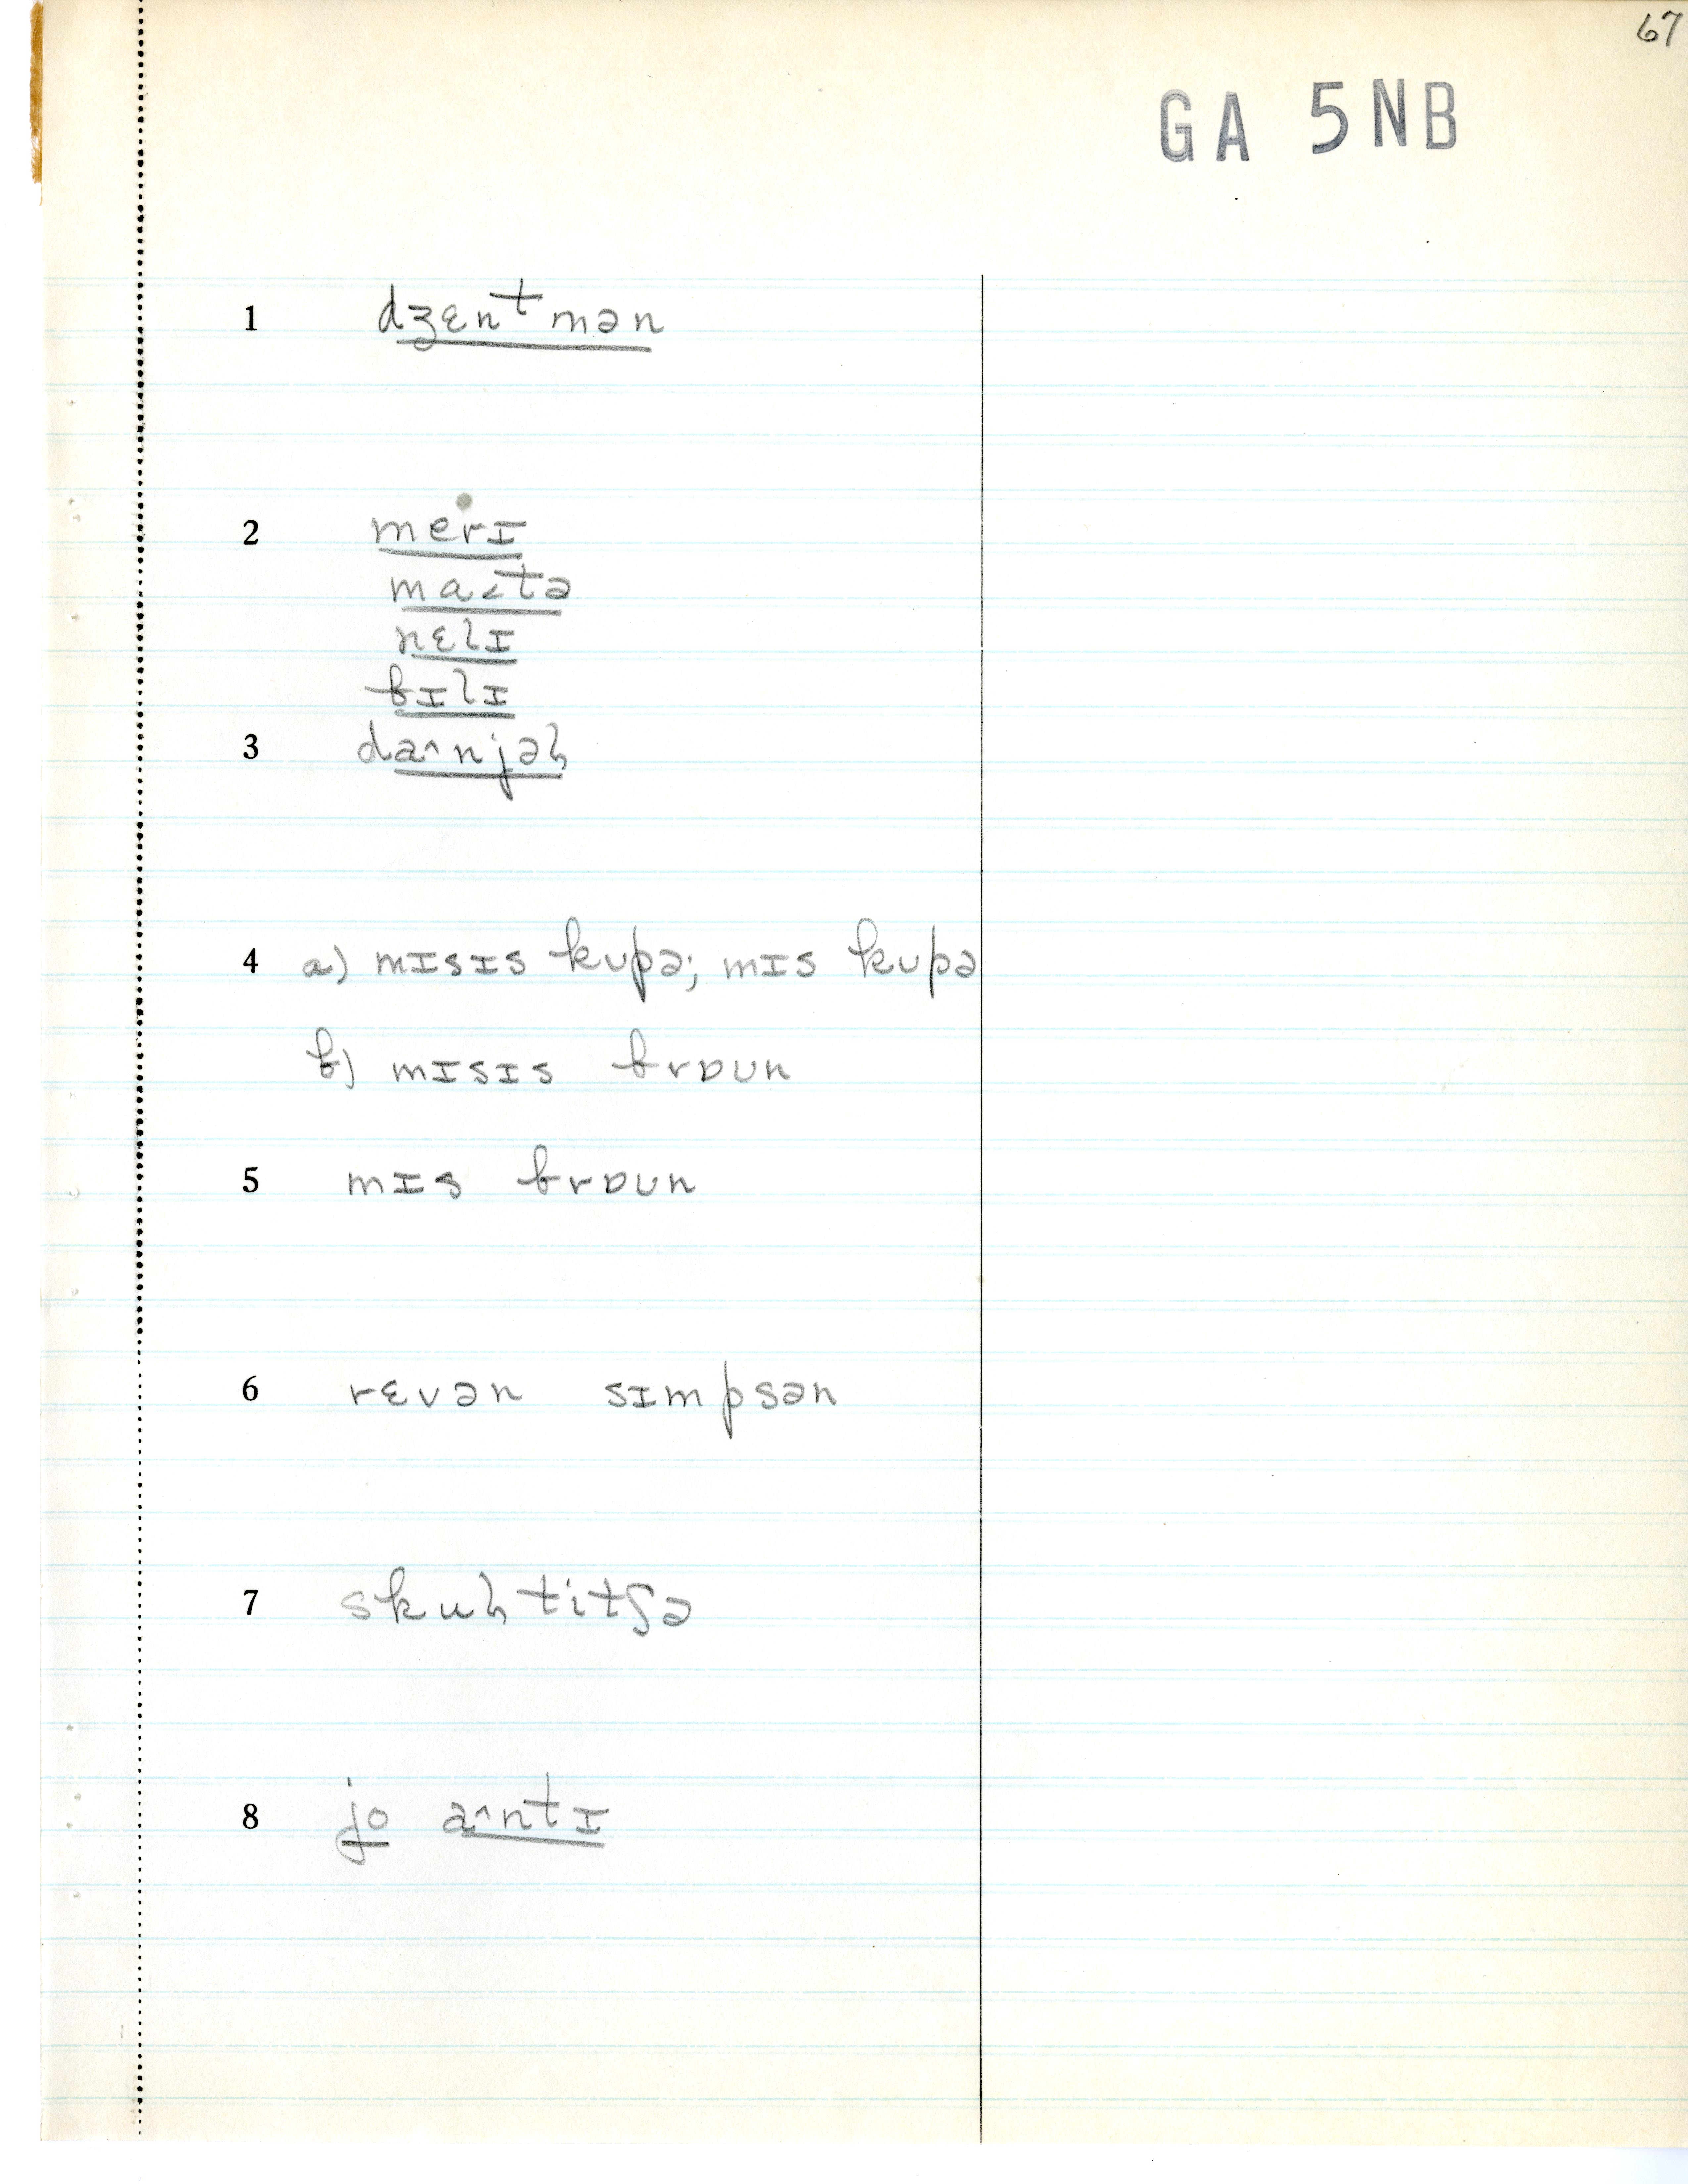 67
GA 5NB
1 dʒɛnᵗmən
2 merɪ
ma˂tə
nɛlɪ
bɪlɪ
3 da^njəɫ
4 a) mɪsɪs kʊpə; mɪs kʊpə
b) mɪsɪs brɒʊn
5 mɪs brɒʊn
6 rɛvən sɪmpsən
7 skuɫtitʃə
8 jo a^ntɪ